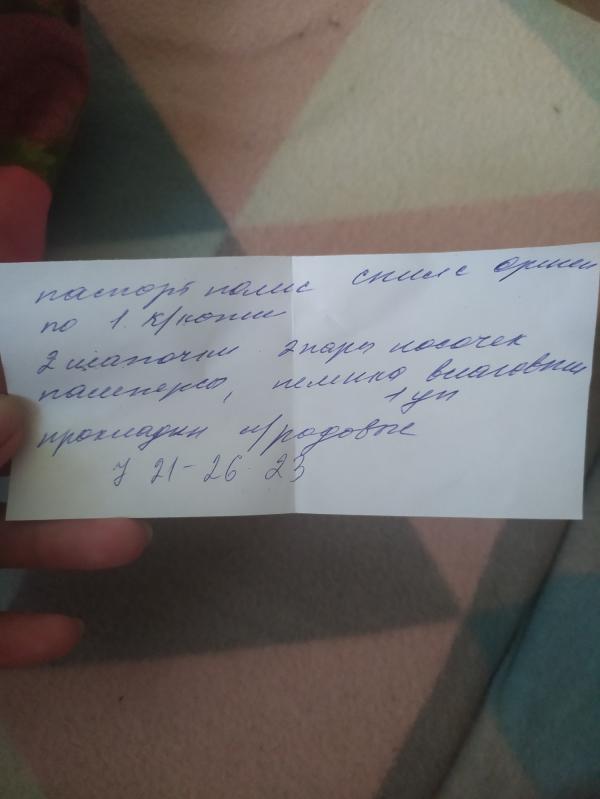 паспорт полис снилс оригин
по 1 к/копии
2 шапочки 2 пары носочек
памперсы, пеленка влаговпит
1 уп
прокладки п/родовые
21-26 23